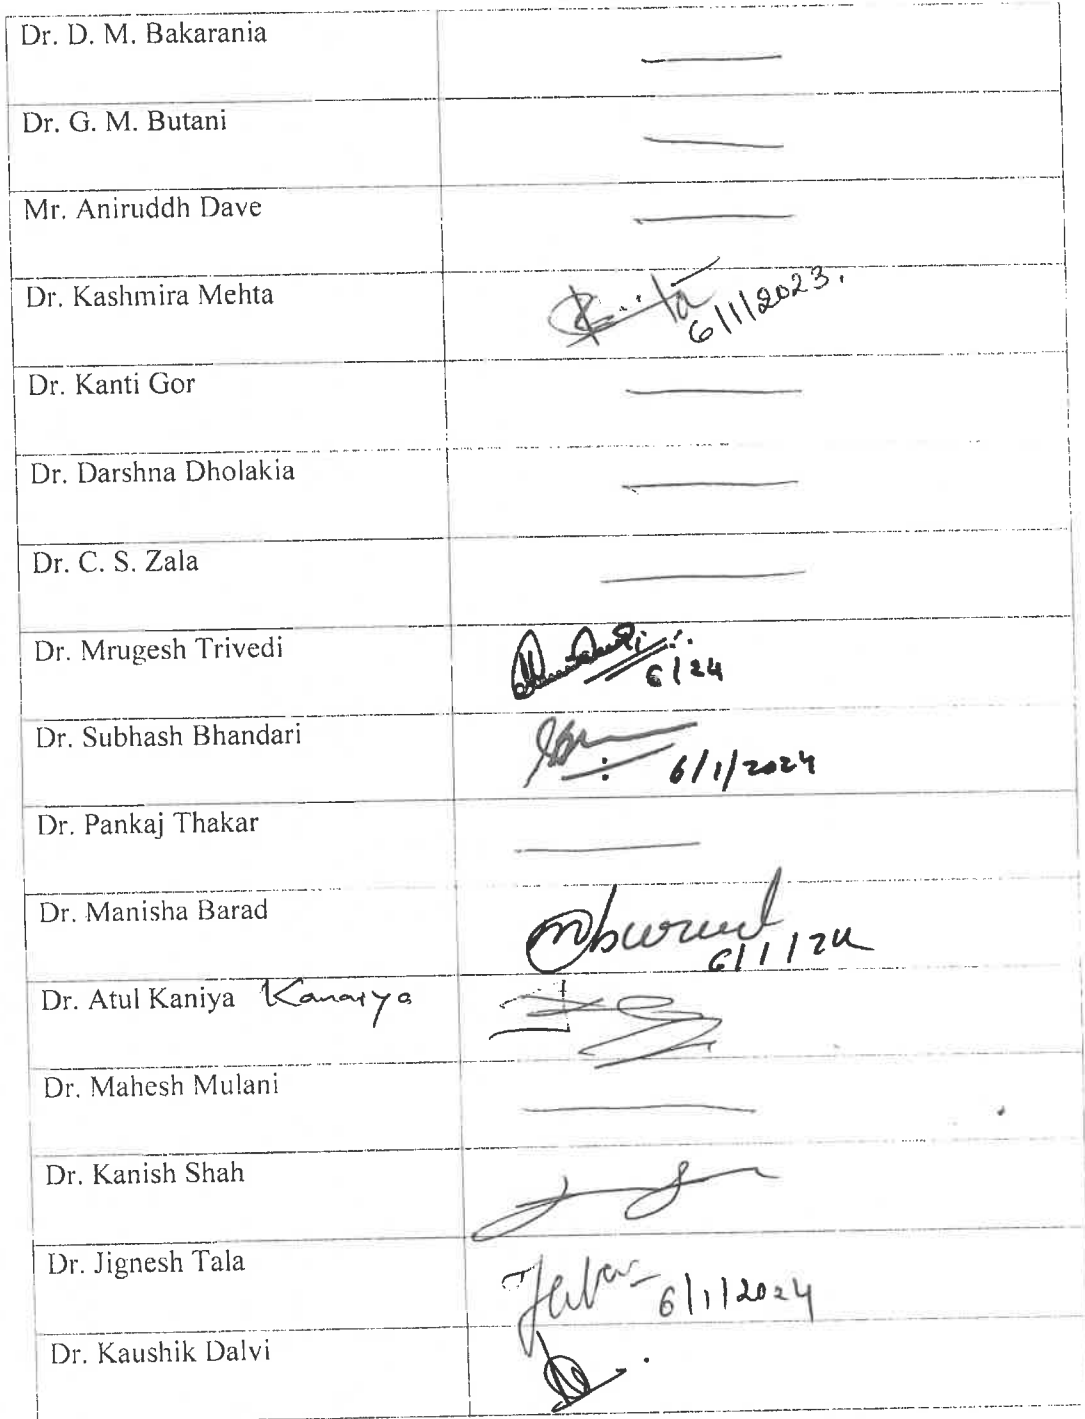 Dr. D. M. Bakarania
Dr. G. M. Butani
Mr. Aniruddh Dave
Dr. Kashmira Mehta
6/1/2023.
Dr. Kanti Gor
Dr. Darshna Dholakia
Dr. C. S. Zala
Dr. Mrugesh Trivedi
6/24
Dr. Subhash Bhandari
6/1/2024
Dr. Pankaj Thakar
Dr. Manisha Barad
6/1/24
Dr. Atul Kaniya Kanariya
Dr. Mahesh Mulani
Dr. Kanish Shah
Dr. Jignesh Tala
6/1/2024
Dr. Kaushik Dalvi